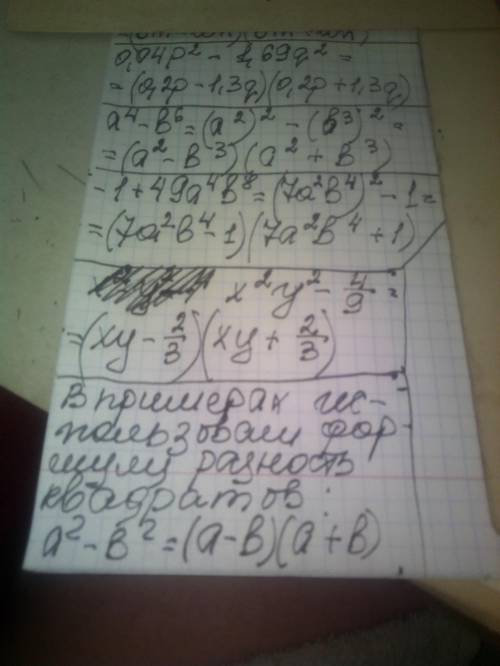 0,04p² - 1,69q² =
= (0,2p - 1,3q)(0,2p + 1,3q)
a⁴ - b⁶ = (a²)² - (b³)² =
= (a² - b³)(a² + b³)
-1 + 49a⁴b⁸ = (7a²b⁴)² - 1 =
= (7a²b⁴ - 1)(7a²b⁴ + 1)
x²y² - 4/9 =
= (xy - 2/3)(xy + 2/3)
В примерах ис-
пользовали фор-
мулу разность
квадратов:
a² - b² = (a - b)(a + b)